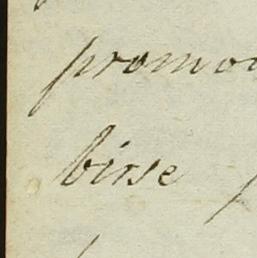 promo
birse